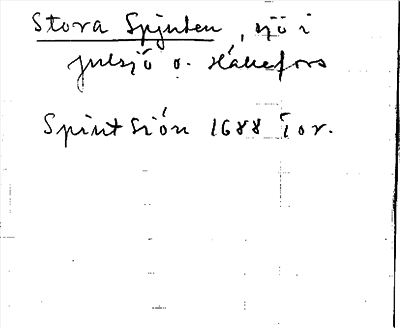 Stora Spjuten, sjö i
Julsjö o. Hällefors
Spint Siön 1688 Jor.